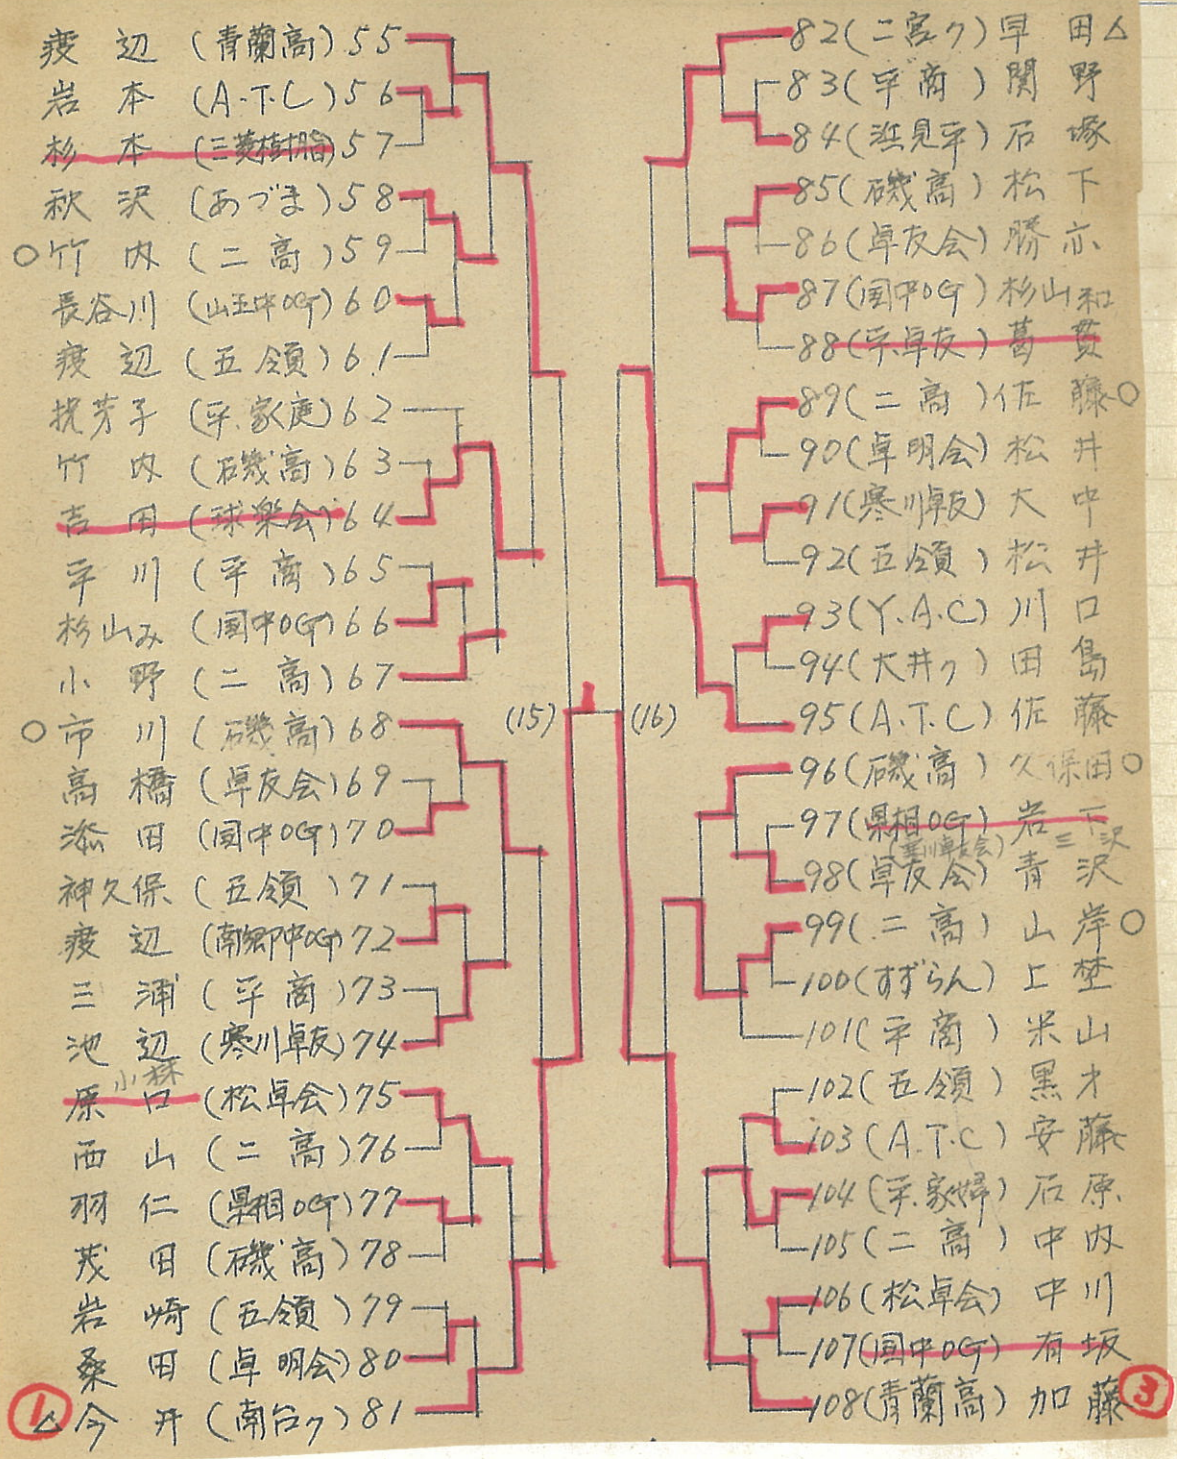 渡辺 (青蘭高) 55
岩本 (A.T.C) 56
杉本 (三菱樹脂) 57
秋沢 (あづま) 58
○竹内 (二高) 59
長谷川 (山王中OG) 60
渡辺 (五領) 61
芳子 (平.家庭) 62
竹内 (磯高) 63
吉田 (球楽会) 64
平川 (平商) 65
杉山み (国中OG) 66
小野 (二高) 67
○市川 (磯高) 68
高橋 (卓友会) 69
添田 (国中OG) 70
神久保 (五領) 71
渡辺 (南郷中OG) 72
三浦 (平商) 73
池辺 (寒川卓友) 74
小林
原口 (松卓会) 75
西山 (二高) 76
羽仁 (県相OG) 77
茂田 (磯高) 78
岩崎 (五領) 79
桑田 (卓明会) 80
① △今井 (南台ク) 81
(15) (16)
82 (二宮ク) 早田△
83 (平商)関野
84 (浜見平) 石塚
85 (磯高) 松下
86 (卓友会) 勝亦
87 (国中OG) 杉山和
88 (平.卓友) 葛貫
89 (二高) 佐藤○
90 (卓明会) 松井
91 (寒川卓友) 大中
92 (五領) 松井
93 (Y.A.C) 川口
94 (大井ク) 田島
95 (A.T.C) 佐藤
96 (磯高) 久保田○
97 (県相OG) 岩下
(寒川卓友会) 三沢
98 (卓友会) 青沢
99 (二高) 山岸○
100 (すずらん) 上埜
101 (平商) 米山
102 (五領) 黒才
103 (A.T.C) 安藤
104 (平.家婦) 石原
105 (二高) 中内
106 (松卓会) 中川
107 (国中OG) 有坂
108 (青蘭高) 加藤 ③